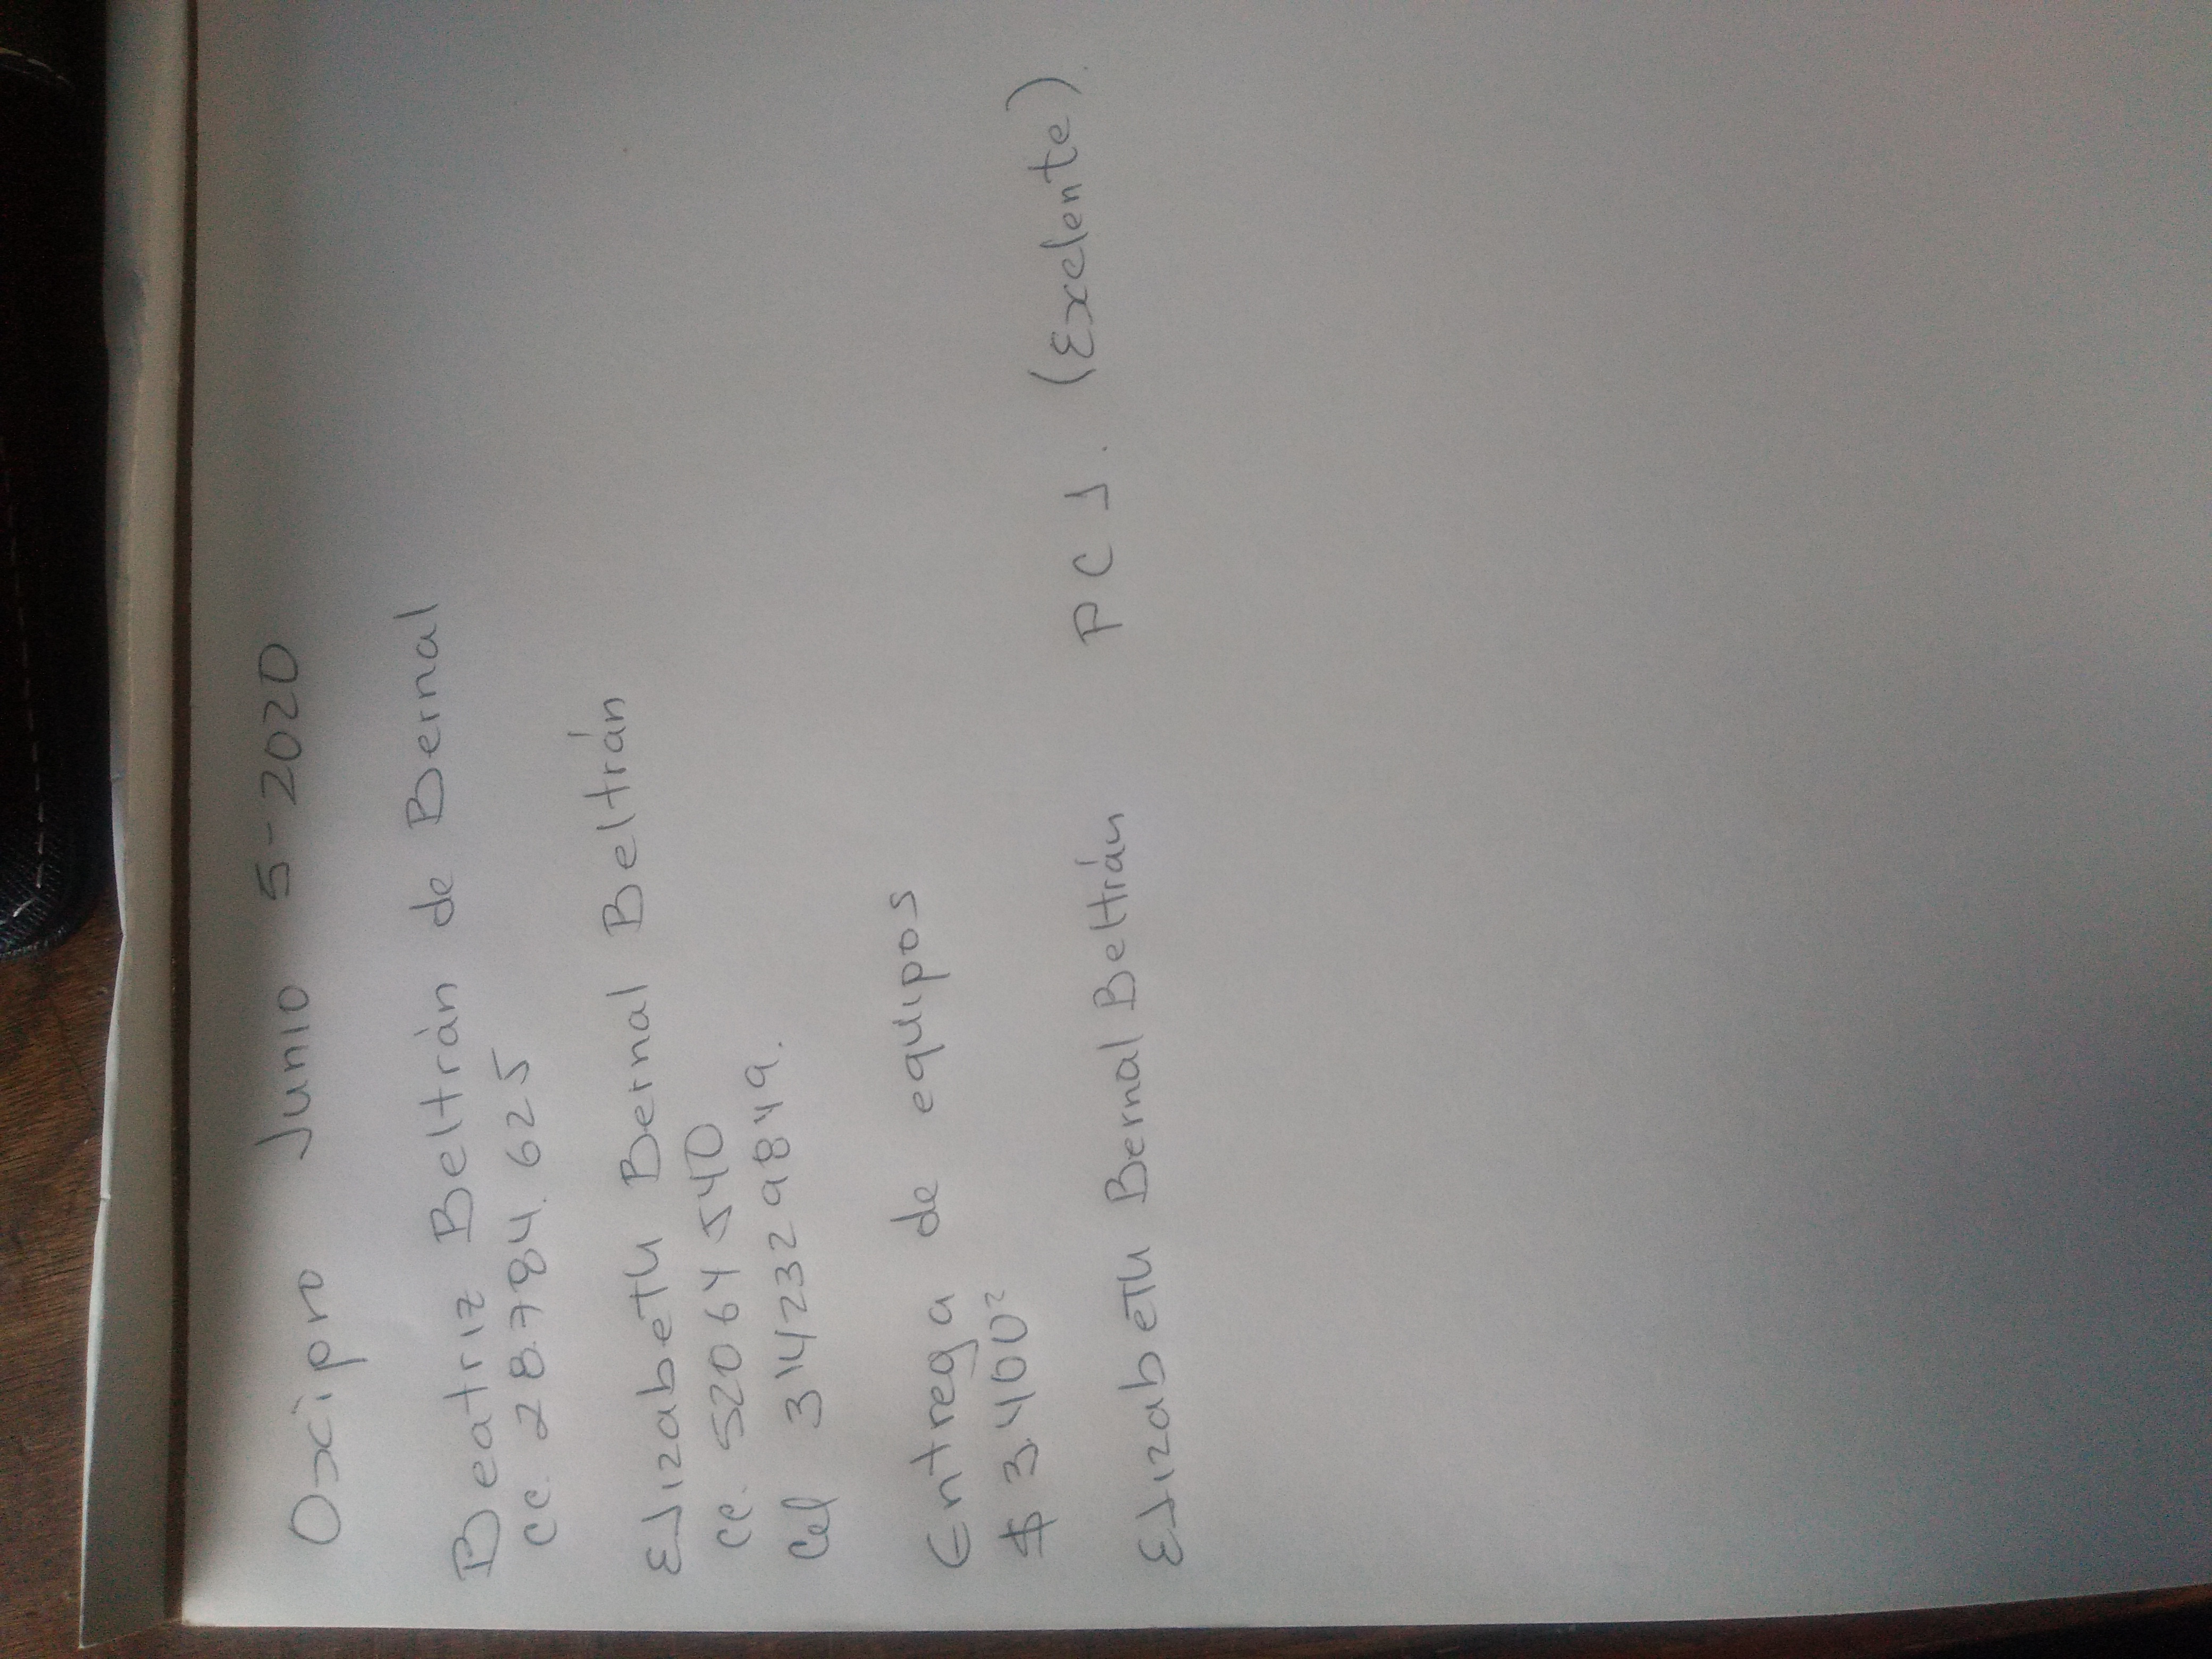 Oxipro Junio 5-2020
Beatriz Beltrán de Bernal
cc. 28.784.625
Elizabeth Bernal Beltrán
cc. 52064540
Cel 3142329849.
Entrega de equipos
$ 3.400=
Elizabeth Bernal Beltrán PCJ. (Exelente).